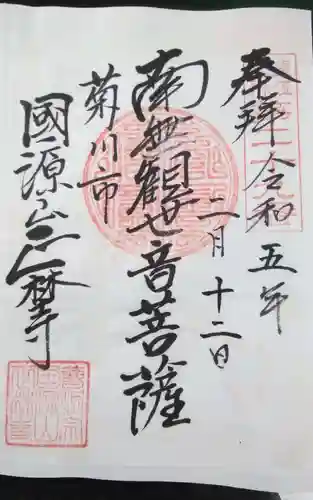 奉拝
令和五年
二月十二日
南無観世音菩薩
菊川市
國源山